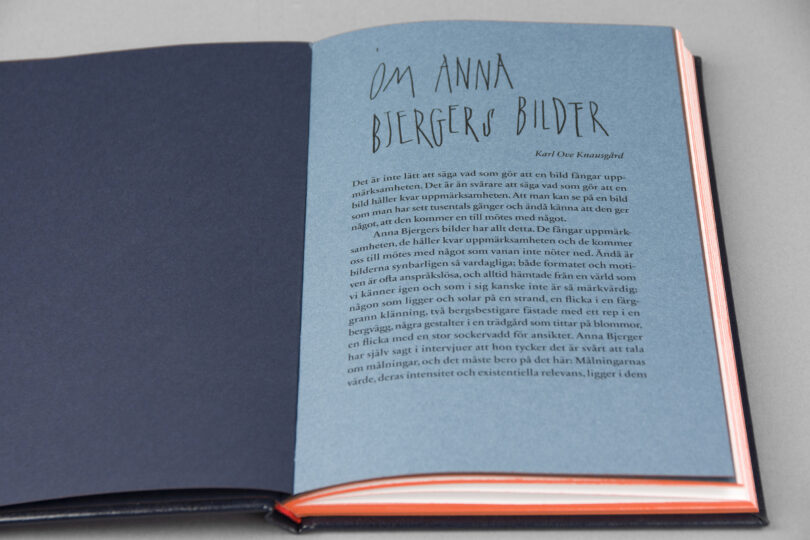 OM ANNA
BJERGERS BILDER
Karl Ove Knausgård
Det är inte lätt att säga vad som gör att en bild fångar upp-
märksamheten. Det är än svårare att säga vad som gör att en
bild håller kvar uppmärksamheten. Att man kan se på en bild
som man har sett tusentals gånger och ändå känna att den ger
något, att den kommer en till mötes med något.
Anna Bjergers bilder har allt detta. De fångar uppmärk-
samheten, de håller kvar uppmärksamheten och de kommer
oss till mötes med något som vanan inte nöter ned. Ändå är
bilderna synbarligen så vardagliga; både formatet och moti-
ven är ofta anspråkslösa, och alltid hämtade från en värld som
vi känner igen och som i sig kanske inte är så märkvärdig:
någon som ligger och solar på en strand, en flicka i en färg-
grann klänning, två bergsbestigare fästade med ett rep i en
bergvägg, några gestalter i en trädgård som tittar på blommor,
en flicka med en stor sockervadd för ansiktet. Anna Bjerger
har själv sagt i intervjuer att hon tycker det är svårt att tala
om målningar, och det måste bero på det här: Målningarnas
värde, deras intensitet och existentiella relevans, ligger i dem